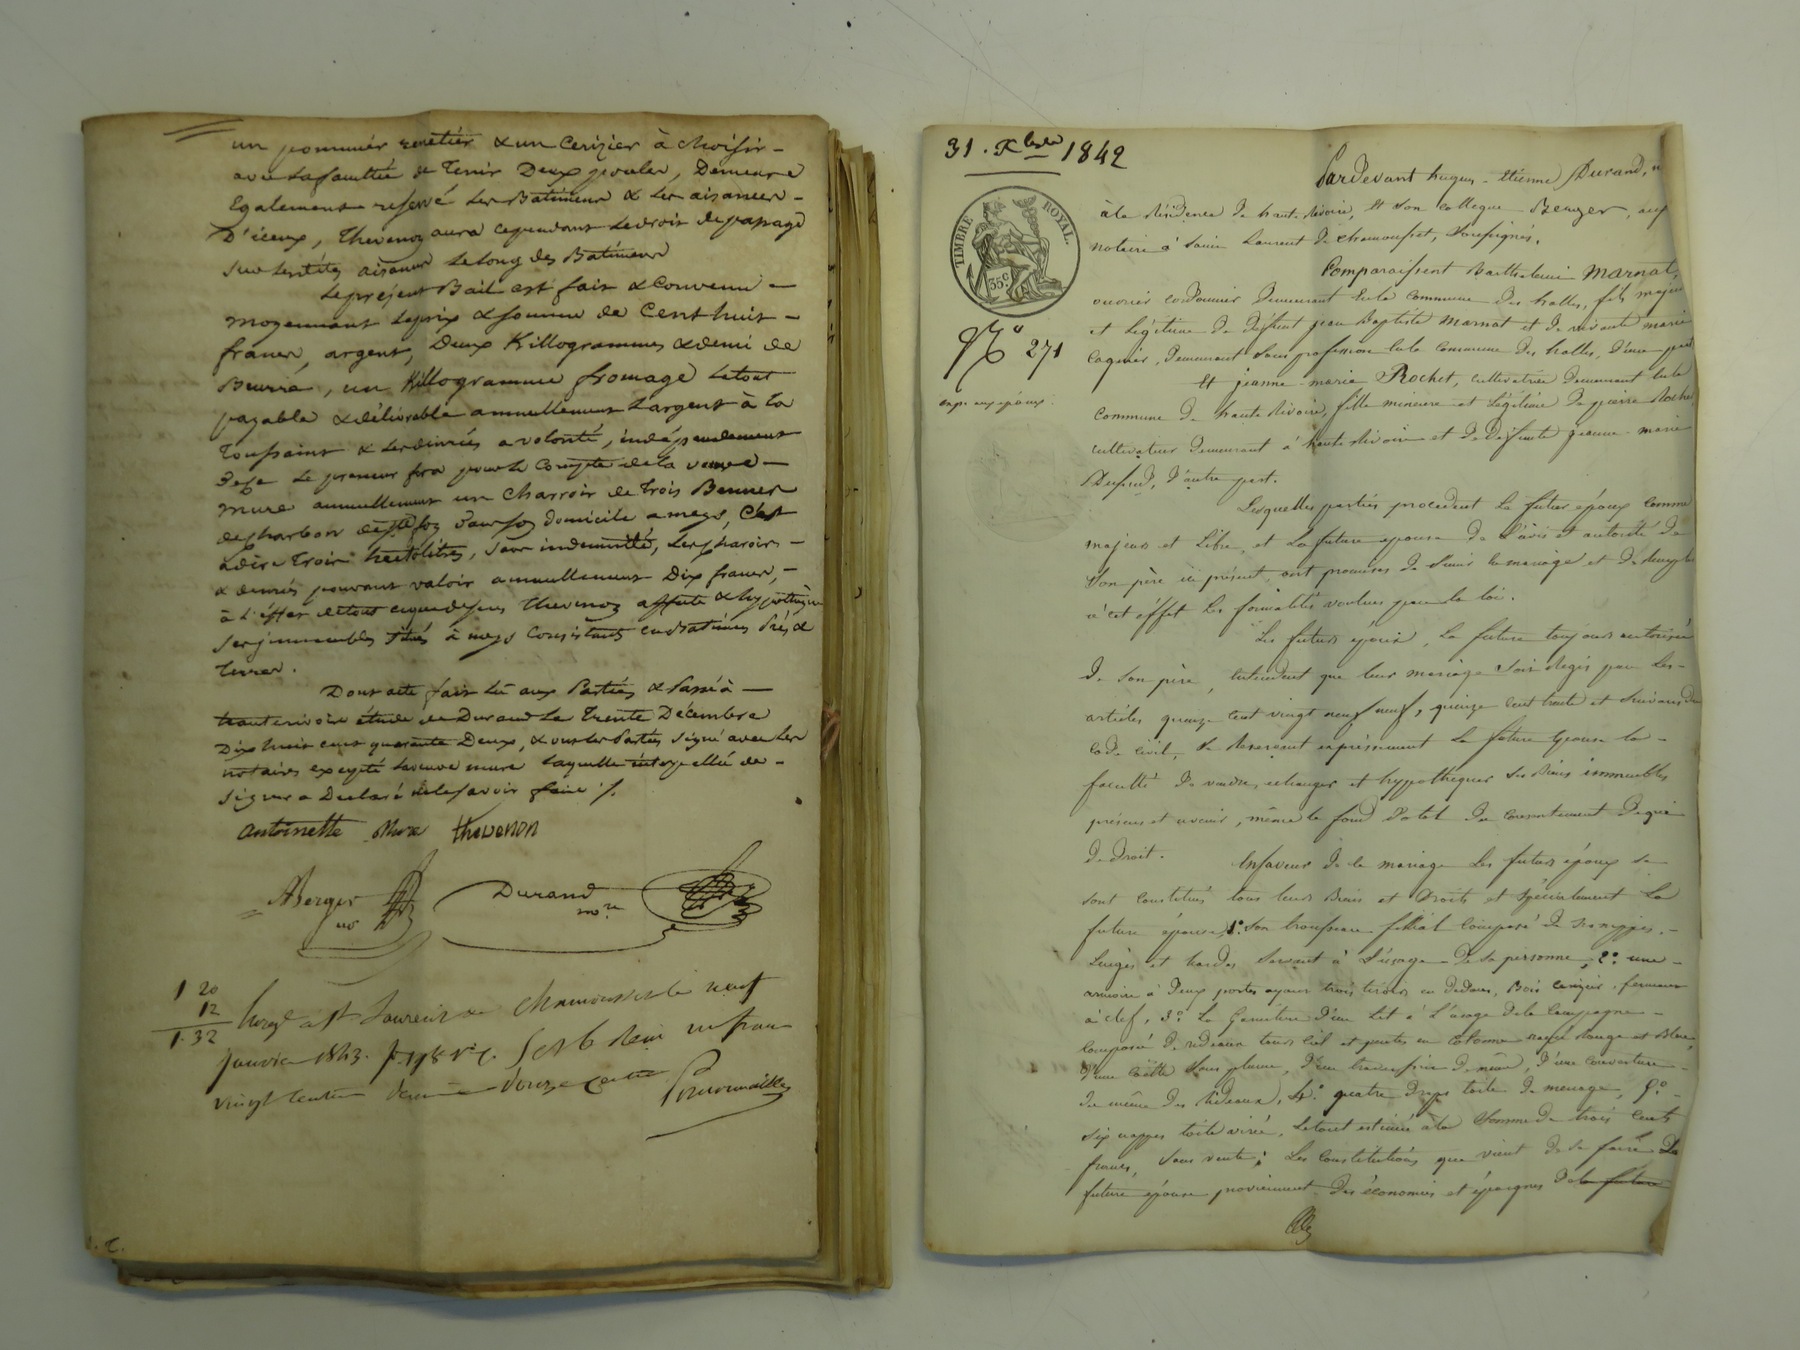 un pommier renetier & un Cerizier à choisir -
avec la faculté de tenir Deux poules, Demeure
Egalement reservé les Batiments & les aisances -
D'iceux, Thevenoz aura cependant le droit de passage
sur lesdites aisances le long des Batiments
Le présent Bail est fait & Convenu -
moyennant le prix & somme de Cent huit -
francs, argent, Deux Killogrammes & demi de
Beurre, un Killogramme fromage le tout
payable & délivrable annuellement l'argent à la
Toussaint & les denrées a volonté, indépendamment
De ce le preneur fera pour le Compte de la veuve -
Mure annuellement un Charroir de trois Bennes
de charbon de Ste foy pour son domicile a meys, C'est
à dire trois hectolitres, sans indemnité, les charois -
& denrés pouvant valoir annuellement Dix francs, -
à l'effet de tout ce que dessus Thevenoz affecte & hypothèque
ses immeubles situés à meys Consistants en Batiments Prés &
terres.
Dont acte fait lu aux Parties & Passé à -
hauterivoire étude de Durand Le Trente Décembre
Dix huit cent quarante Deux, & ont les Parties signé avec les
notaires excepté la veuve mure laquelle interpellée de -
signer a Declaré ne le savoir faire ./.
antoinette Mure thevenon
ABerger no
Durand nore
1 20
12
1.32
Enregé a St Laurent de Chamousset le neuf
janvier 1843. fo 178 Vo C. 5 et 6 Reçu un franc
vingt centimes Decime Douze centimes
31. Xbre 1842
TIMBRE ROYAL.
35c
No 271
exp. aux époux
Pardevant hugues-Etienne Durand, n
à la Résidence de haute Rivoire, Et Son Collegue Berger, aussi
notaire à Saint Laurent de chamousset, Soussignés,
Comparaissent Barthelemi Marnat,
ouvrier cordonnier Demeurant en la commune des halles, fils majeur
et Légitime de défunt jean Baptiste Marnat et de vivante marie
Coquier, demeurant sans profession en la commune des halles, d'une part
Et jeanne-marie Rochet, cultivatrice Demeurant en la
Commune de haute Rivoire, fille mineure et Légitime de pierre Rochet
cultivateur Demeurant à haute Rivoire et de Défunte jeanne-marie
d'autre part.
Lesquelles parties procedent Le futur époux comme
majeur et Libre, et La future epouse de l'avis et autorité de
Son père ici présent, ont promises de s'unir en mariage et de remplir
à cet éffet les formalités voulues par la loi.
Les futurs époux, La future toujours autorisée
de Son père, entendent que leur mariage Soit Régis par Les -
articles quinze cent vingt neuf, quinze cent trente et Suivans du
code civil, Se Reservant expréssement La future Epouse la -
faculté de vendre, echanger et hyppothequer Ses Biens immeubles
présens et avenir, même le fond Dotal du consentement de qui
de Droit.
En faveur de ce mariage Les futurs époux Se
sont constitués tous leurs Biens et Droits et Spécialement La
future épouse, 1o Son trousseau filial Composé de Ses nippes, -
Linges et hardes Servant à L'usage de Sa personne, 2o une -
armoire à Deux portes ayant trois tiroirs en dedans, Bois cerizier, fermant
à clef, 3o La Garniture D'un Lit à L'usage de la Campagne -
Composée de rideaux tours ciel et pentes en cotonne rayé Rouge et Bleu,
d'une coëtte Sans plume, d'un traversin de même, d'une couverture -
de même des Rideaux, 4o quatre draps toile de menage, 5o -
Six nappes toile virée, Le tout estimé à la Somme de trois Cents
francs, Sans vente; Les Constitutions que vient de se faire La
future épouse proviennent des économies et épargnes de la future